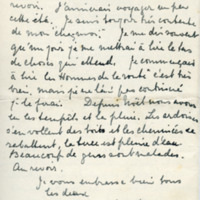 revoir. J'aimerais voyager un peu
cette été. Je suis toujours très contente
de mon chez moi. Je me dis souvent
qu'un jour je me mettrai à lire le tas
de choses qui attend. Je commençait
à lire les Hommes de la route c'est très
vrai, mais je n'ai pas continué
je le finirai. Depuis Noël nous avons
eu les tempêts et la pluie. Les ardoises
s'envollent des toits et les cheminées se
rabattent, la terre est pleine d'eau
Beaucoup de gens sont malades.
Au revoir.
Je vous embrasse bien tous
les deux